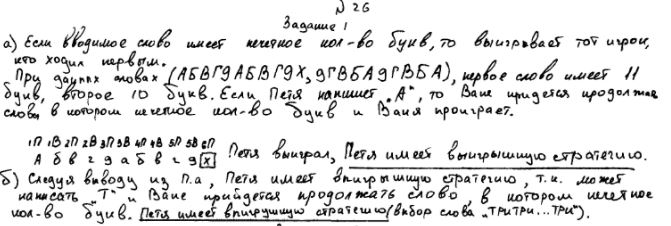 N 26
Задание 1
а) Если вводимое слово имеет нечетное кол-во букв, то выигрывает тот игрок,
кто ходил первым.
При данных словах (АБВГДАБВГДХ, ДГВБАДГВБА), первое слово имеет 11
букв, второе 10 букв. Если Петя напишет "А", то Ване придется продолжать
слово в котором нечетное кол-во букв и Ваня проиграет.
1П 1В 2П 2В 3П 3В 4П 4В 5П 5В 6П
А б в г д а б в г д х Петя выиграл, Петя имеет выигрышную стратегию.
б) Следуя выводу из п.а, Петя имеет выигрышную стратегию, т.к. может
написать "Т" и Ване прийдется продолжать слово, в котором нечетное
кол-во букв. Петя имеет выигрушную стратегию (выбор слова "ТРИТРИ...ТРИ").